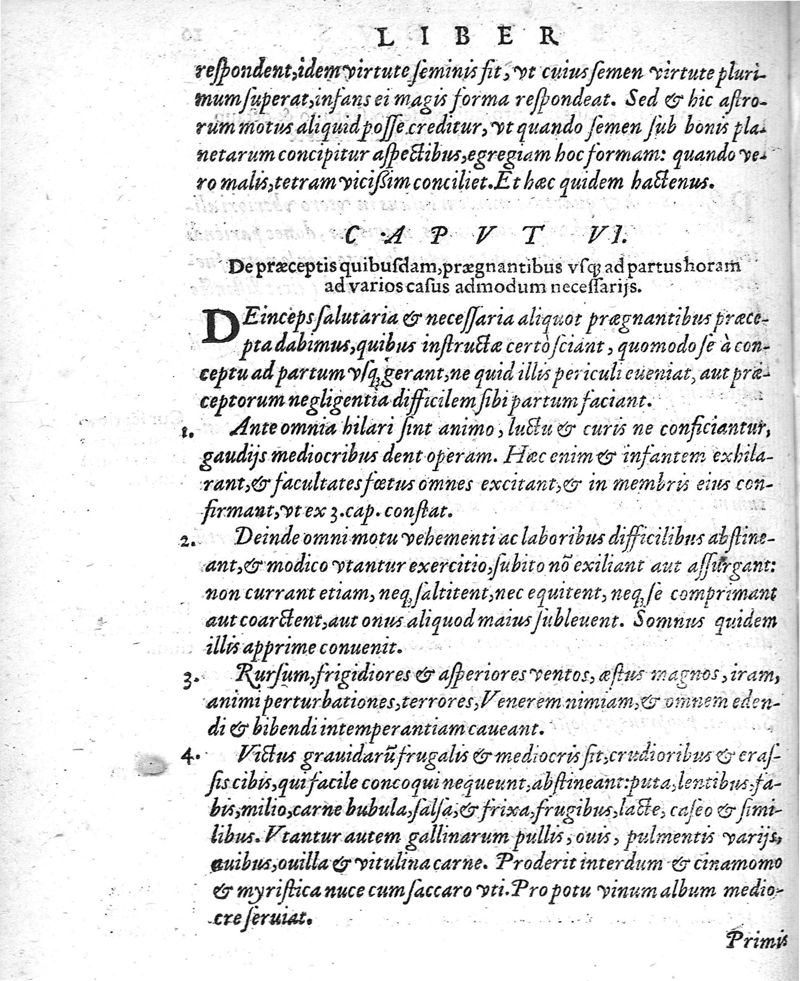 LIBER
respondent, idem virtute seminis fit, vt cuius semen virtute pluri-
mum superat, infans ei magis forma respondeat. Sed & hic astro-
rum motus aliquid posse creditur, vt quando semen sub bonis pla-
netarum concipitur aspectibus, egregiam hoc formam: quando ve-
ro malis, tetram vicissim conciliet. Et hæc quidem hactenus.
CAPVT VI.
De præceptis quibusdam, prægnantibus vsq; ad partus horam
ad varios casus admodum necessarijs.
DEinceps salutaria & necessaria aliquot prægnantibus præce-
pta dabimus, quibus instructæ certò sciant, quomodo se à con-
ceptu ad partum vsq; gerant, ne quid illis periculi eueniat, aut præ-
ceptorum negligentia difficilem sibi partum faciant.
1. Ante omnia hilari sint animo, luctu & curis ne conficiantur,
gaudijs mediocribus dent operam. Hæc enim & infantem exhila-
rant, & facultates fœtus omnes excitant, & in membris eius con-
firmant, vt ex 3. cap. constat.
2. Deinde omni motu vehementi ac laboribus difficilibus abstine-
ant, & modico vtantur exercitio, subito nõ exiliant aut assurgant:
non currant etiam, neq; saltitent, nec equitent, neq; se comprimant
aut coarctent, aut onus aliquod maius subleuent. Somnus quidem
illis apprime conuenit.
3. Rursum, frigidiores & asperiores ventos, æstus magnos, iram,
animi perturbationes, terrores, Venerem nimiam, & omnem eden-
di & bibendi intemperantiam caueant.
4. Victus grauidarũ frugalis & mediocris sit, crudioribus & eras-
sis cibis, qui facile concoqui nequeunt, abstineant: puta, lentibus, fa-
bis, milio, carne bubula, salsa, & frixa, frugibus, lacte, caseo & simi-
libus. Vtantur autem gallinarum pullis, ouis, pulmentis varijs,
auibus, ouilla & vitulina carne. Proderit interdum & cinamomo
& myristica nuce cum saccaro vti. Pro potu vinum album medio-
cre seruiat.
Primis